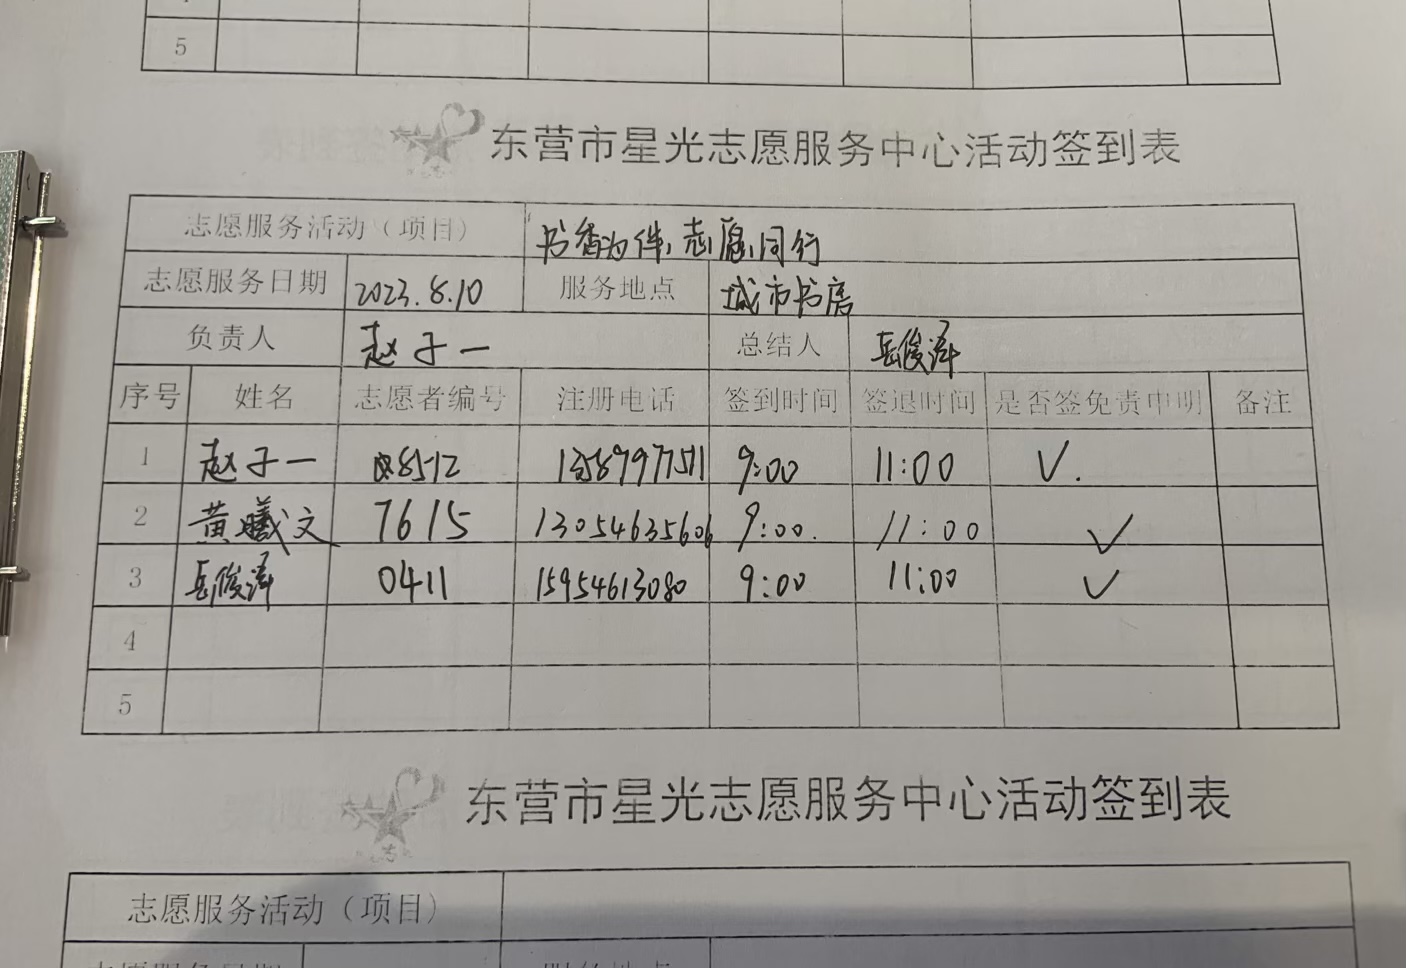 5
东营市星光志愿服务中心活动签到表
志愿服务活动（项目） 书香为伴,志愿同行
志愿服务日期 2023.8.10 服务地点 城市书房
负责人 赵子一 总结人 岳俊泽
序号 姓名 志愿者编号 注册电话 签到时间 签退时间 是否签免责申明 备注
1 赵子一 8512 9:00 11:00 √.
2 黄曦文 7615 13054635606 9:00. 11:00 √
3 岳俊泽 0411 15954613080 9:00 11:00 √
4
5
东营市星光志愿服务中心活动签到表
志愿服务活动（项目）
志愿服务日期 服务地点